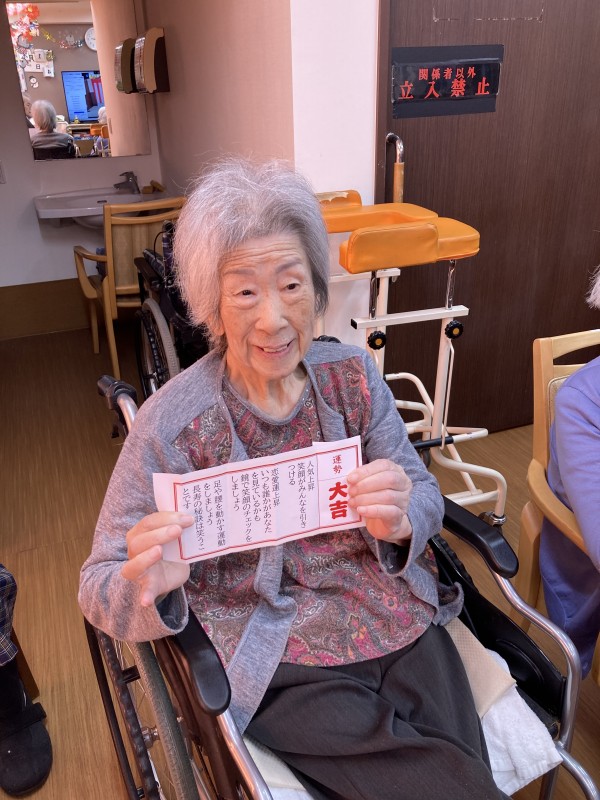 関係者以外
立入禁止
運勢
大吉
人気上昇
笑顔がみんなを引き
つける
恋愛運上昇
いつも誰かがあなた
を見ているかも
鏡で笑顔のチェックを
しましょう
足や腰を動かす運動
をしましょう
長寿の秘訣は笑うこ
とです